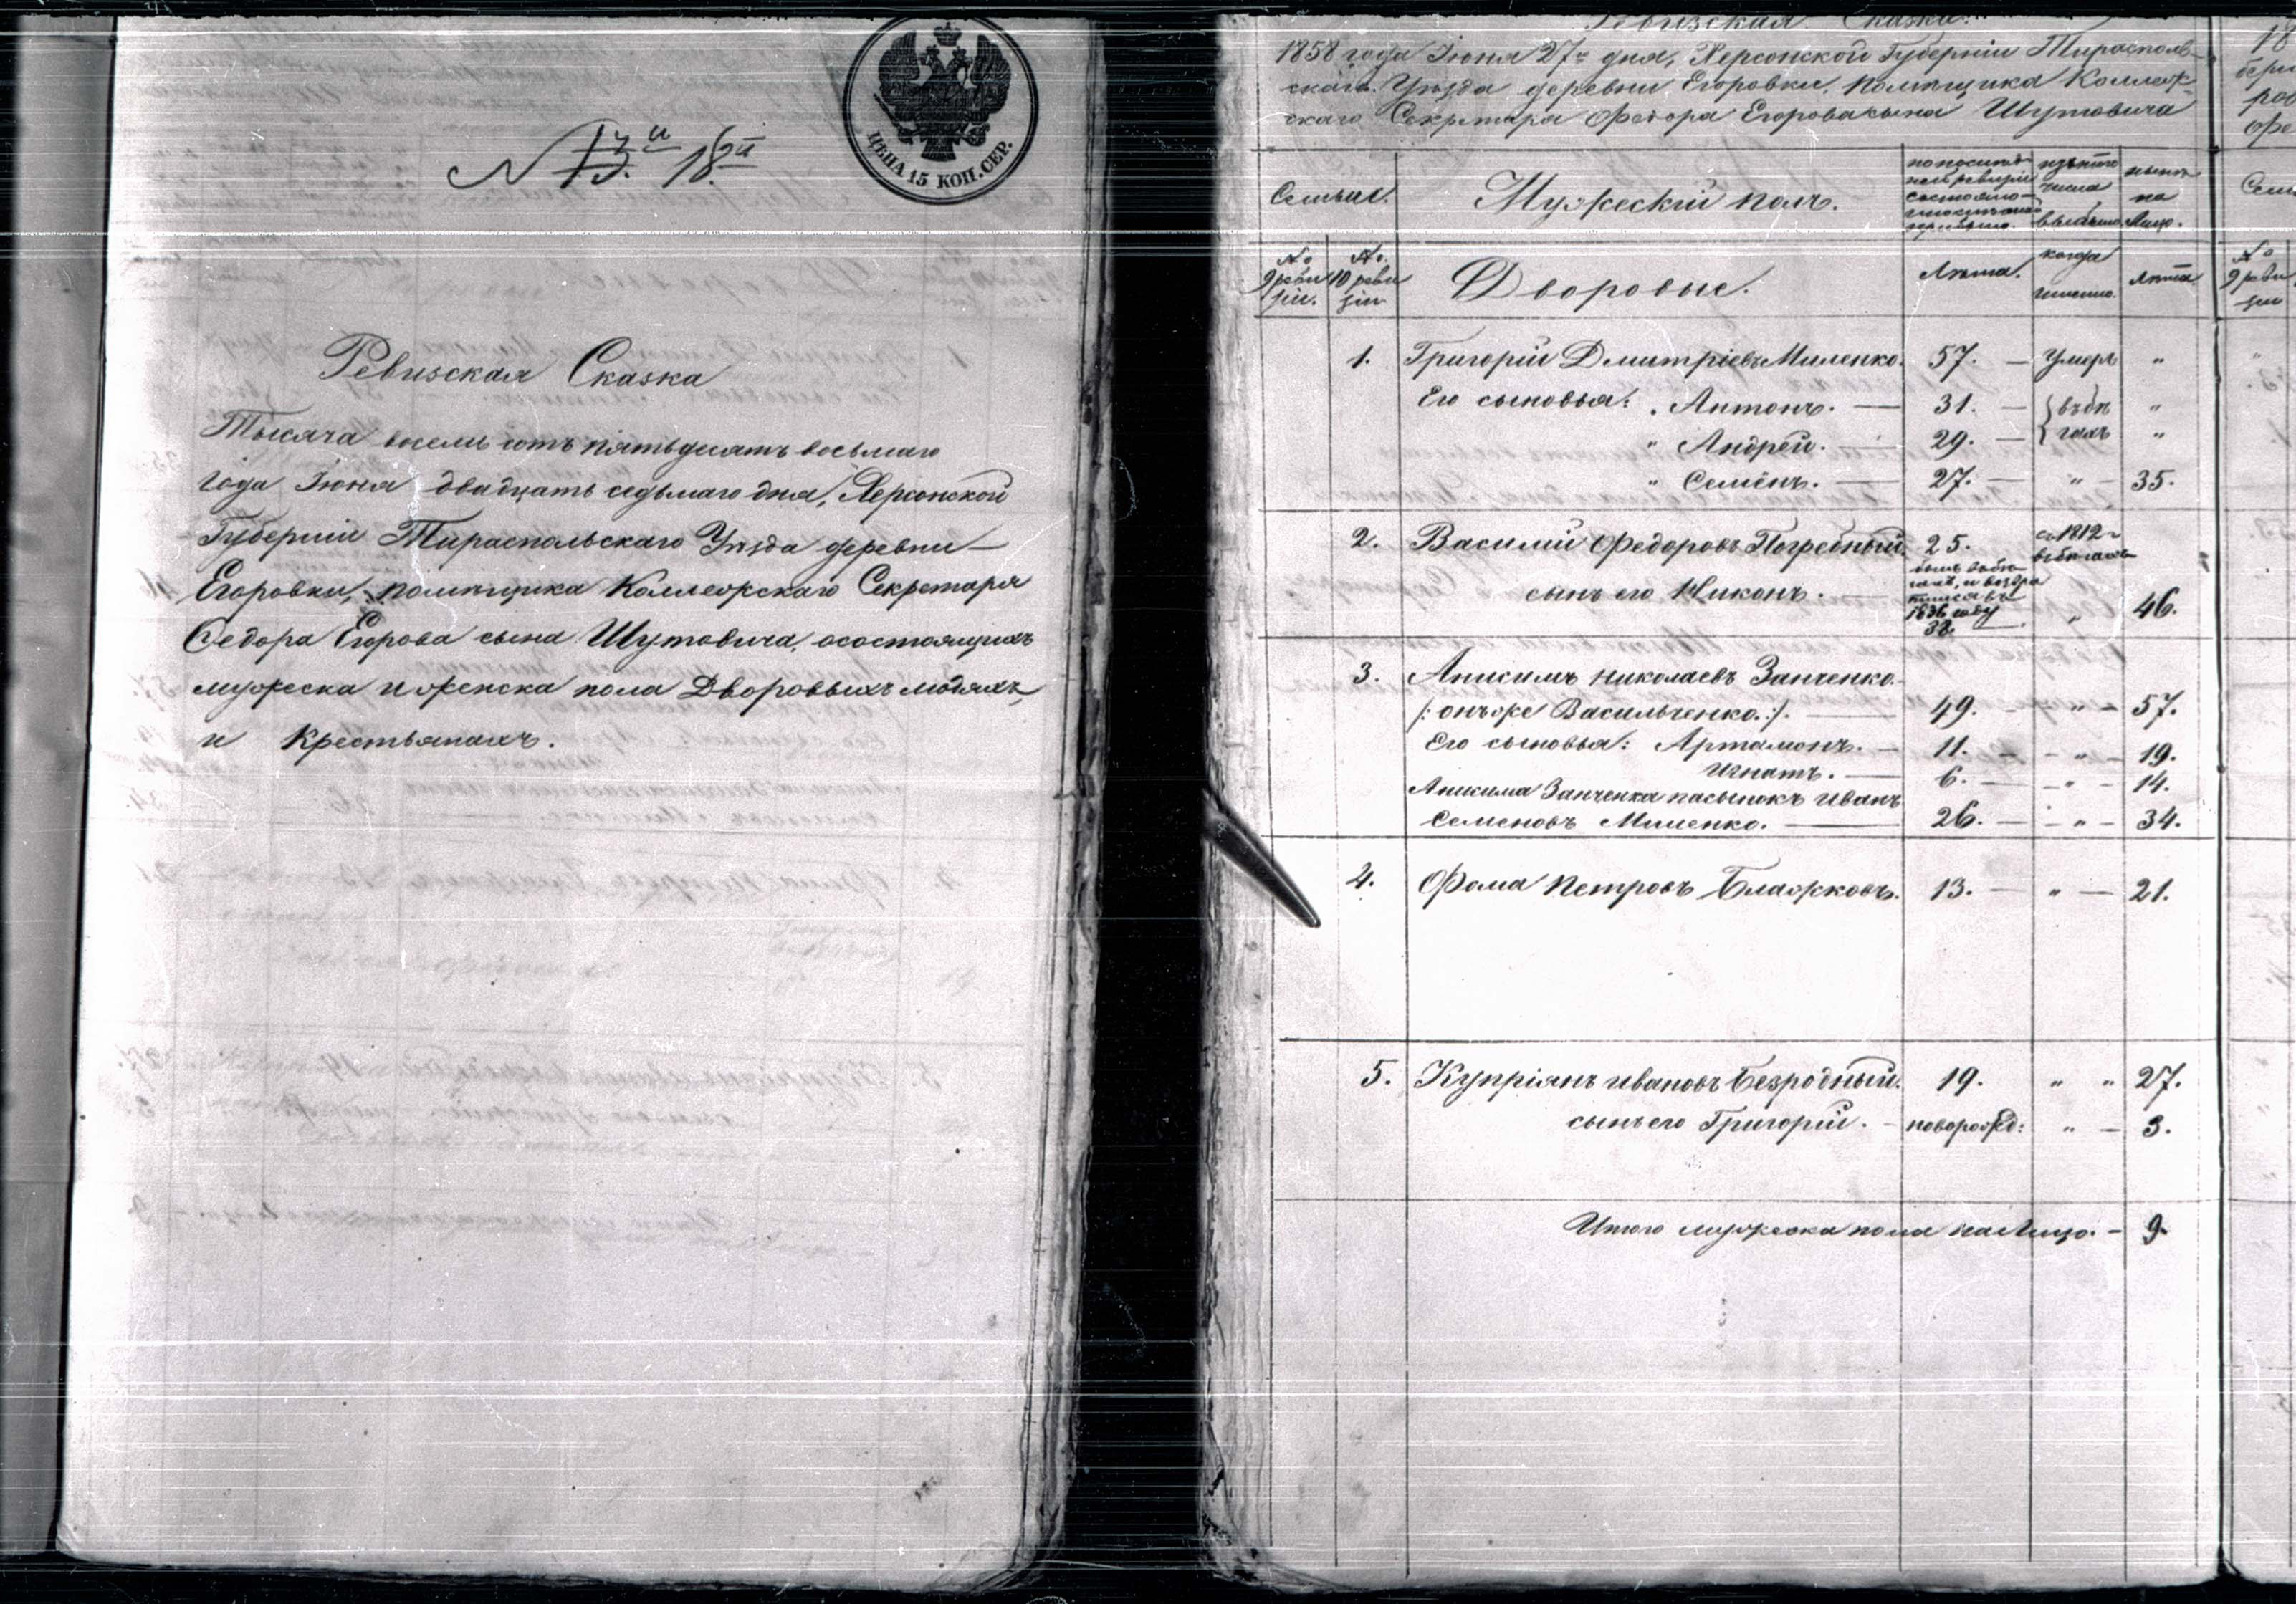 ЦѢНА 15 КОП. СЕР.
Ревизская Сказка
Тысяча восемь сотъ пятьдесятъ восьмаго
года Іюня двадцать седьмаго дня, Херсонской
Губерніи Тираспольскаго Уѣзда деревни
Егоровки, помѣщика Коллежскаго Секретаря
Федора Егорова сына Шутовича, осостоящихъ
мужеска и женска пола Дворовыхъ людяхъ,
и Крестьянахъ.
Ревизская Сказка.
1858 года Іюня 27го дня, Херсонской Губерніи Тирасполь-
скаго Уѣзда деревни Егоровки, Помѣщика Коллеж-
скаго Секретаря Федора Егорова сына Шутовича
Семьи. Мужескій полъ. изъ того числа выбыло нынѣ на лицо.
№ 9 ревизіи. № 10 ревизіи Дворовые. Лѣта. когда именно. Лѣта
1. Григорій Дмитріевъ Миленко. 57. — умеръ "
Его сыновья: Антонъ. — 31. — въ бѣ "
" Андрей. — 29. — гахъ "
" Семёнъ. — 27. — " — 35.
2. Василий Федоровъ Погребный. 25. съ 1812 г. въ бѣгахъ
былъ въ бѣгахъ, и возвратился въ 1836 году
сынъ его Никонъ. — 38. — " 46.
3. Анисимъ Николаевъ Занченко.
/: онъ же Васильченко. :/. — 49. — " — 57.
Его сыновья: Артамонъ. — 11. — " — 19.
Игнатъ. — 6. — " — 14.
Анисима Занченка пасынокъ Иванъ
Семеновъ Миленко. — 26. — " — 34.
4. Фома Петровъ Блажковъ. 13. — " — 21.
5. Купріянъ Ивановъ Безродный. 19. " " 27.
сынъ его Григорій. — новорожд: " — 3.
Итого мужеска пола на Лицо. — 9.